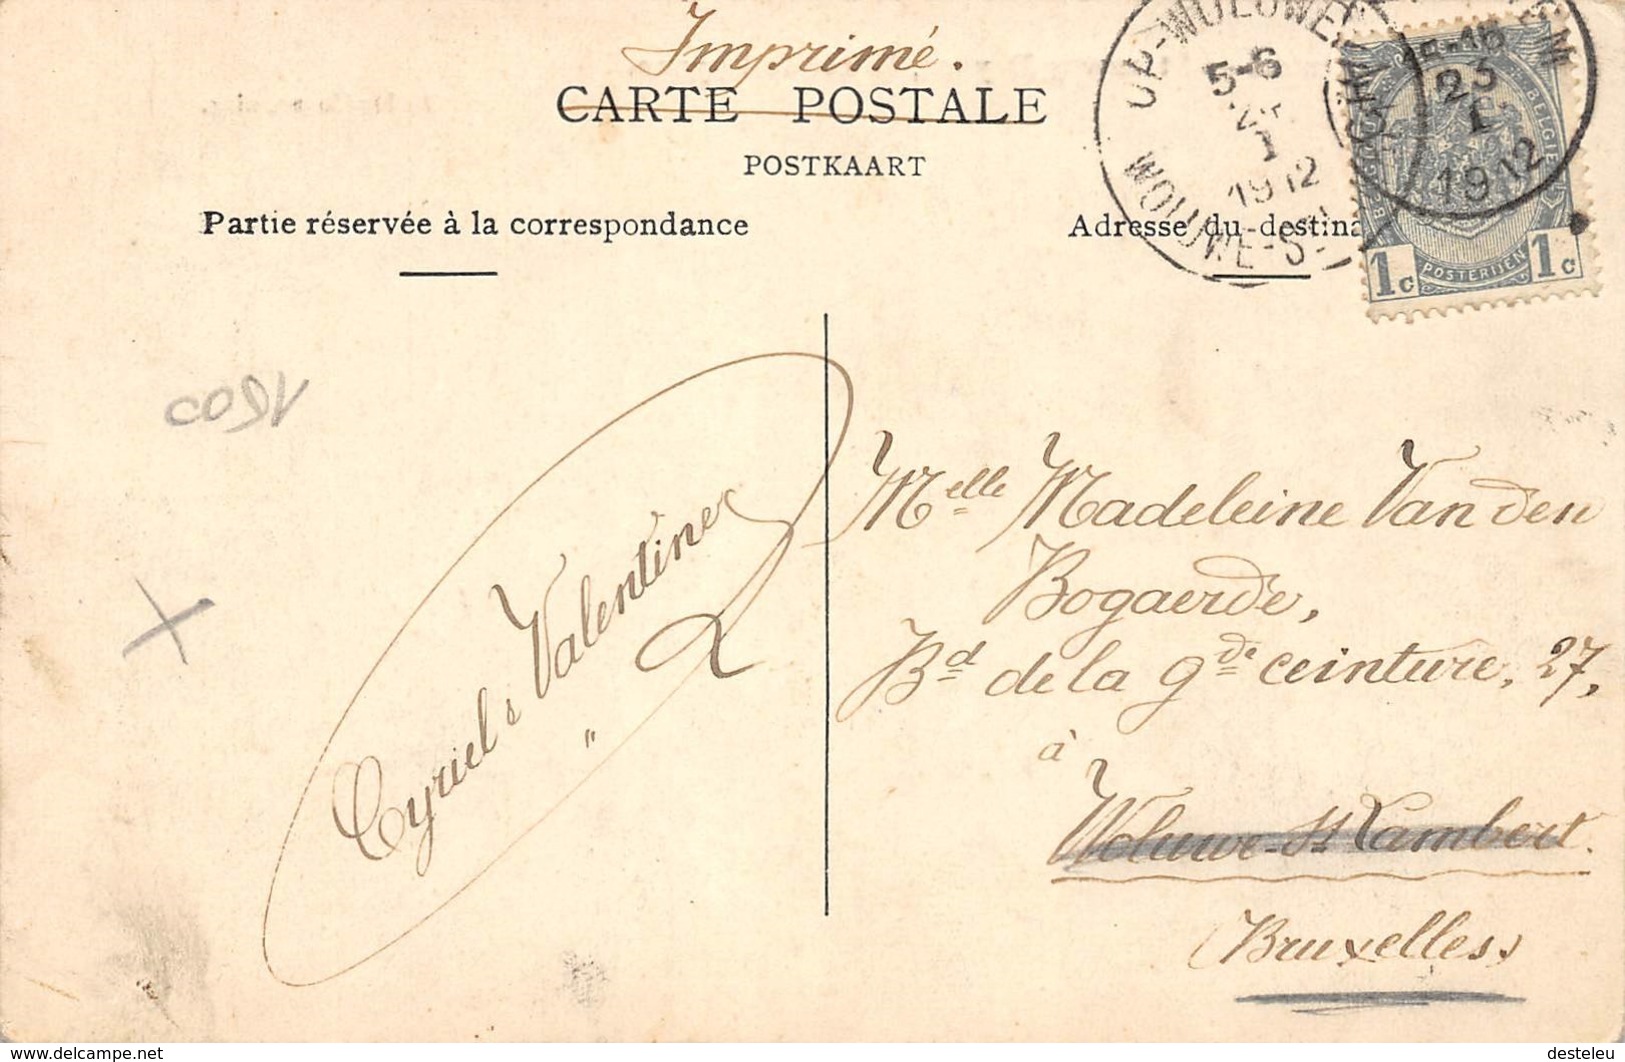 Imprimé.
CARTE POSTALE
POSTKAART
Partie réservée à la correspondance
Adresse du destina
UP-WOLUWE
5-6
1
1912
WOLUWE-S
23
1
1912
BELGIE
POSTERIJEN
1c 1c
Cyriel & Valentine
Melle Madeleine Van den
Bogaerde,
Bd de la gde ceinture, 27,
à
Woluwe-St Lambert.
(Bruxelles)
delcampe.net
desteleu